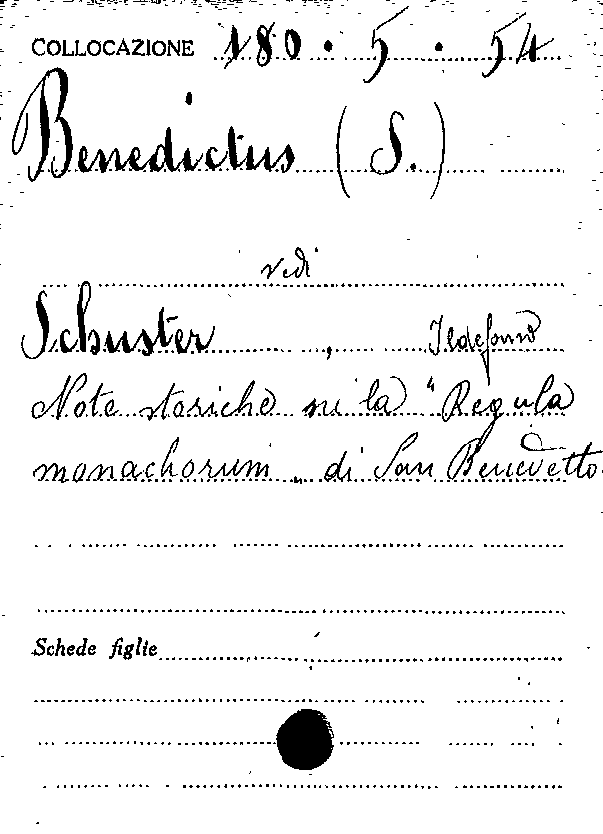 COLLOCAZIONE 180.5.54
Benedictus (S.)
vedi
Schuster, Ildefonso
Note storiche su la "Regula
monachorum„ di San Benedetto.
Schede figlie